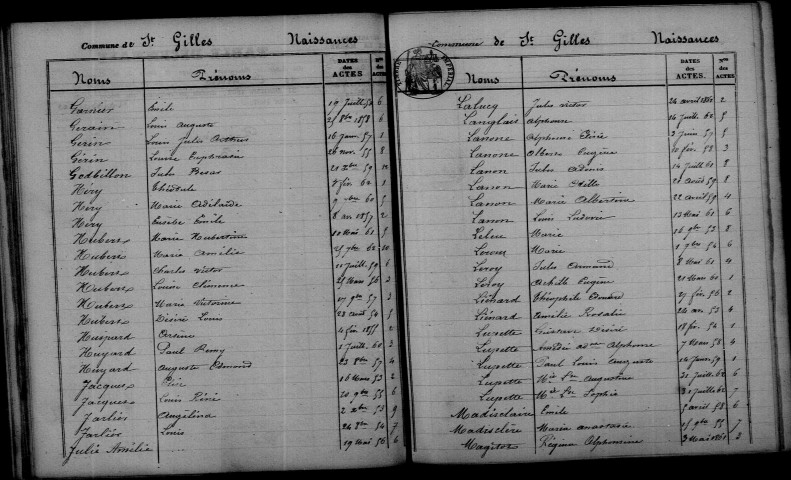 Commune de St Gilles Naissances
Noms Prénoms DATES des ACTES Nos des ACTES
Garnier Emile 19 Juill 6
Gérain Louis Auguste 25 8bre 1858 6
Gérin Louis Jules Arthur 16 Janv 57 1
Gérin Louise Euphrasie 26 nov. 55 8
Godbillon Jules 20 59 12
Héry Théodule 8 fév 62 1
Héry Marie Adélaïde 9 60 5
Héry Eusèbe Emile 8 av. 1857 2
Hubert Marie Hubertine 10 Mai 61 5
Hubert Marie Amélie 25 9bre 62 10
Hubert Charles Victor 11 Juill 59 6
Hubert Louise Clémence 25 Mars 56 3
Hubert Marie Victorine 27 9bre 57 3
Hubert Désiré Louis 23 août 54 5
Huspard Arsène 4 fév. 1855 2
Huyard Paul Remy 1 Juill. 60 3
Huyard Auguste Edmond 23 8bre 57 4
Jacques 16 Mars 53 2
Jacques Louis Désiré 20 9bre 55 6
Jarlier Angélina 2 Xbre 53 9
Jarlier Louis 24 8bre 54 7
Julie Amélie 19 Mai 56 6
Commune de St Gilles Naissances
Noms Prénoms DATES des ACTES. Nos des ACTES
Lalucq Jules Victor 24 avril 1861 2
Langlais Alphonse 14 Juill. 62 5
Lanone Alphonse Désiré 3 Juin 57 5
Lanone Albert Eugène 10 fév. 58 3
Lanon Jules 14 Juill 61 8
Lanon Marie Odile 21 août 59 8
Lanon Marie Albertine 22 avril 59 4
Lanon Louis Ludovic 13 Mai 61 6
Leleu Marie 16 9bre 53 8
Marie 1 7bre 54 6
Leroy Jules Armand 8 Mai 61 4
Leroy Achille Eugène 21 Mars 60 1
Liénard Théophile Edouard 27 fév. 56 2
Liénard Amélie Rosalie 24 av. 53 4
Lupette Gustave Désiré 18 fév. 54 1
Lupette Amédée Alphonse 7 Mars 58 4
Lupette Paul Louis Auguste 14 Janv. 59 1
Lupette Augustine 21 Juill 62 6
Lupette Sophie 31 Juill 62 7
Madisclaire Emile 5 avril 58 6
Madisclère Marie Anastasie 15 9bre 55 7
Magitot Régina Alphonsine 3 Mai 1861 2